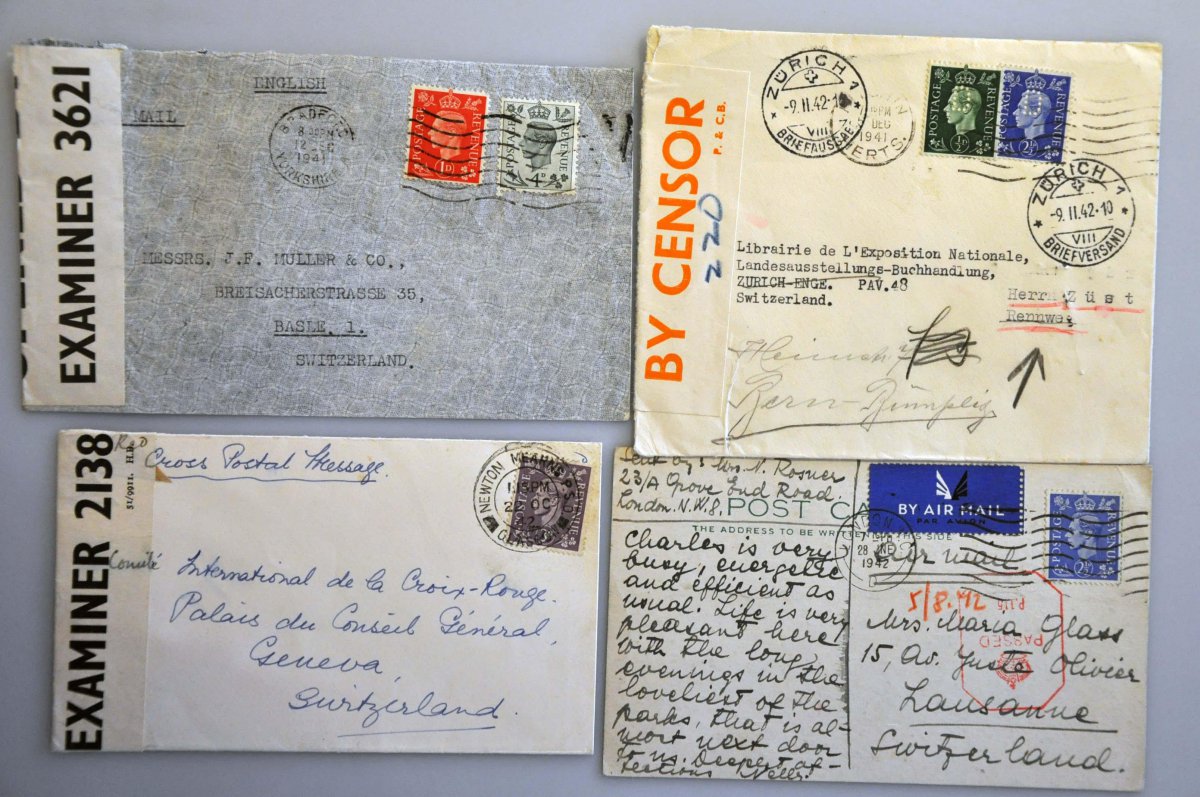 EXAMINER 3621
ENGLISH
MAIL
BRADFORD
8 PM
12 DEC
1941
YORKSHIRE
POSTAGE REVENUE
1D
POSTAGE REVENUE
4D
MESSRS. J.F. MULLER & CO.,
BREISACHERSTRASSE 35,
BASLE, 1.
SWITZERLAND.
BY CENSOR
P. & C.B.
220
ZÜRICH 1
-9.II.42-10
VIII
BRIEFAUSGABE
DEC
1941
ERTS.
POSTAGE REVENUE
½D
POSTAGE REVENUE
2½D
ZÜRICH 1
-9.II.42-10
VIII
BRIEFVERSAND
Librairie de L'Exposition Nationale,
Landesausstellungs-Buchhandlung,
ZURICH-ENGE. PAV.48
Switzerland.
Herrn Züst
Rennweg
Bern-Bümpliz
EXAMINER 2138
51/9911. H.B.
Red
Cross Postal Message
NEWTON MEARNS
OC
REVENUE
Comité
International de la Croix-Rouge.
Palais du Conseil Général,
Geneva,
Switzerland.
Sent by: Mrs. N. Rosner
23/A Grove End Road.
London. N.W.8.
POST CA
THE ADDRESS TO BE WRI
THIS SIDE
BY AIR MAIL
PAR AVION
LONDON
28 JNE
1942
POSTAGE REVENUE
2½D
Air mail
Charles is very
busy, energetic
and efficient as
usual. Life is very
pleasant here
with the long
evenings in the
loveliest of the
parks, that is al-
most next door
to us. Deepest af-
fections Nelly.
5/8.42
PASSED
P.115
Mrs. Maria Glass
15, Av. Juste Olivier
Lausanne
Switzerland.